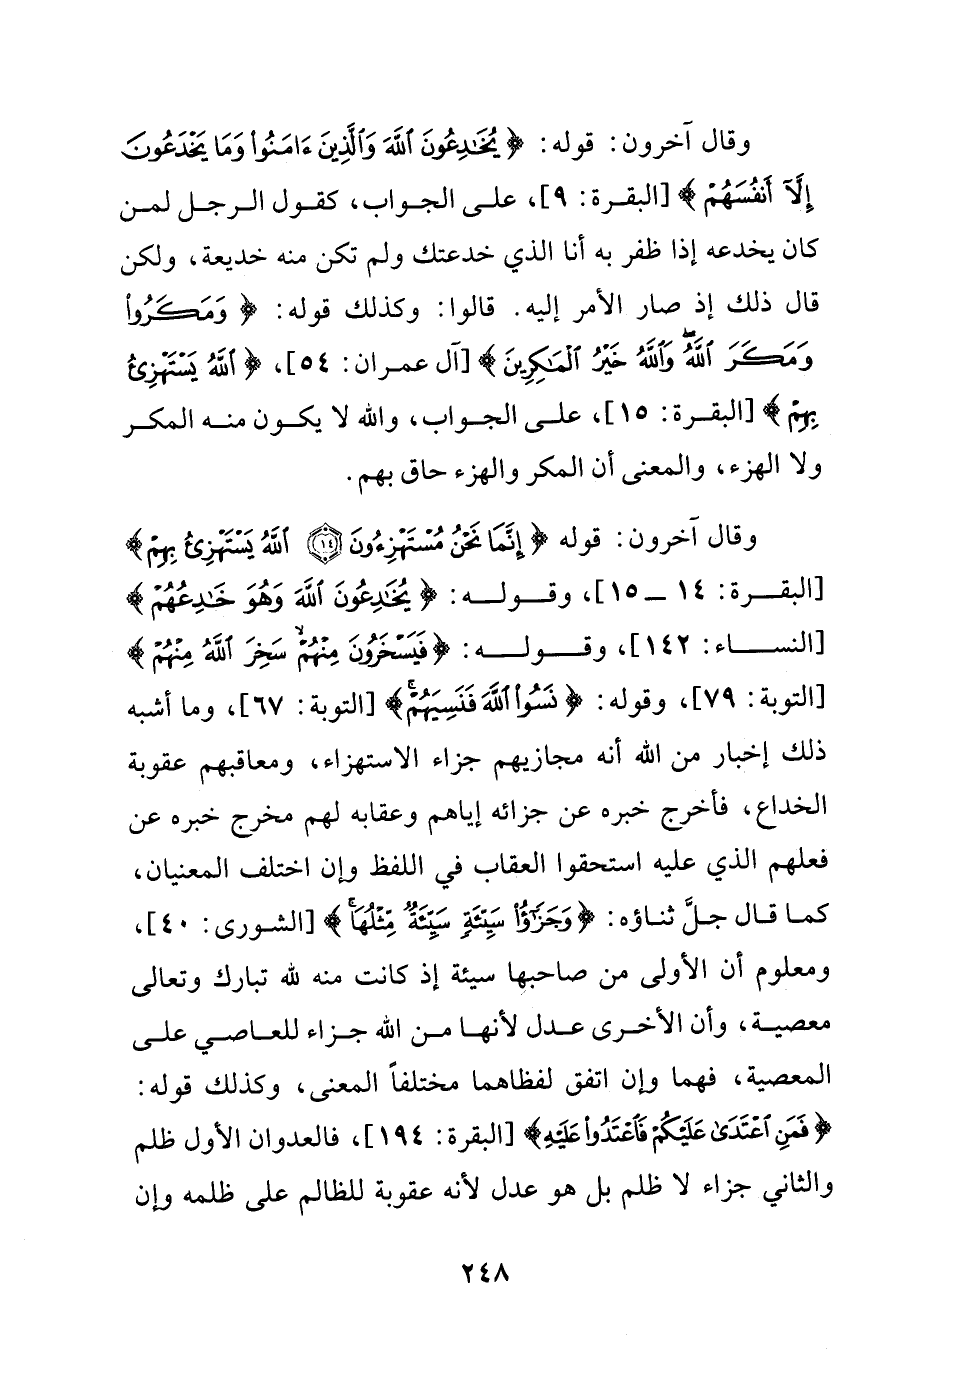 وقال آخرون: قوله: ﴿ يُخَٰدِعُونَ ٱللَّهَ وَٱلَّذِينَ ءَامَنُوا۟ وَمَا يَخْدَعُونَ
إِلَّآ أَنفُسَهُمْ ﴾ [البقرة: ٩]، على الجواب، كقول الرجل لمن
كان يخدعه إذا ظفر به أنا الذي خدعتك ولم تكن منه خديعة، ولكن
قال ذلك إذ صار الأمر إليه. قالوا: وكذلك قوله: ﴿ وَمَكَرُوا۟
وَمَكَرَ ٱللَّهُ ۖ وَٱللَّهُ خَيْرُ ٱلْمَٰكِرِينَ ﴾ [آل عمران: ٥٤]، ﴿ ٱللَّهُ يَسْتَهْزِئُ
بِهِمْ ﴾ [البقرة: ١٥]، على الجواب، والله لا يكون منه المكر
ولا الهزء، والمعنى أن المكر والهزء حاق بهم.
وقال آخرون: قوله ﴿ إِنَّمَا نَحْنُ مُسْتَهْزِءُونَ ١٤ ٱللَّهُ يَسْتَهْزِئُ بِهِمْ ﴾
[البقرة: ١٤ ـ ١٥]، وقوله: ﴿ يُخَٰدِعُونَ ٱللَّهَ وَهُوَ خَٰدِعُهُمْ ﴾
[النساء: ١٤٢]، وقوله: ﴿ فَيَسْخَرُونَ مِنْهُمْ ۙ سَخِرَ ٱللَّهُ مِنْهُمْ ﴾
[التوبة: ٧٩]، وقوله: ﴿ نَسُوا۟ ٱللَّهَ فَنَسِيَهُمْ ۚ ﴾ [التوبة: ٦٧]، وما أشبه
ذلك إخبار من الله أنه مجازيهم جزاء الاستهزاء، ومعاقبهم عقوبة
الخداع، فأخرج خبره عن جزائه إياهم وعقابه لهم مخرج خبره عن
فعلهم الذي عليه استحقوا العقاب في اللفظ وإن اختلف المعنيان،
كما قال جلَّ ثناؤه: ﴿ وَجَزَٰٓؤُا۟ سَيِّئَةٍ سَيِّئَةٌ مِّثْلُهَا ۖ ﴾ [الشورى: ٤٠]،
ومعلوم أن الأولى من صاحبها سيئة إذ كانت منه لله تبارك وتعالى
معصية، وأن الأخرى عدل لأنها من الله جزاء للعاصي على
المعصية، فهما وإن اتفق لفظاهما مختلفاً المعنى، وكذلك قوله:
﴿ فَمَنِ ٱعْتَدَىٰ عَلَيْكُمْ فَٱعْتَدُوا۟ عَلَيْهِ ﴾ [البقرة: ١٩٤]، فالعدوان الأول ظلم
والثاني جزاء لا ظلم بل هو عدل لأنه عقوبة للظالم على ظلمه وإن
٢٤٨